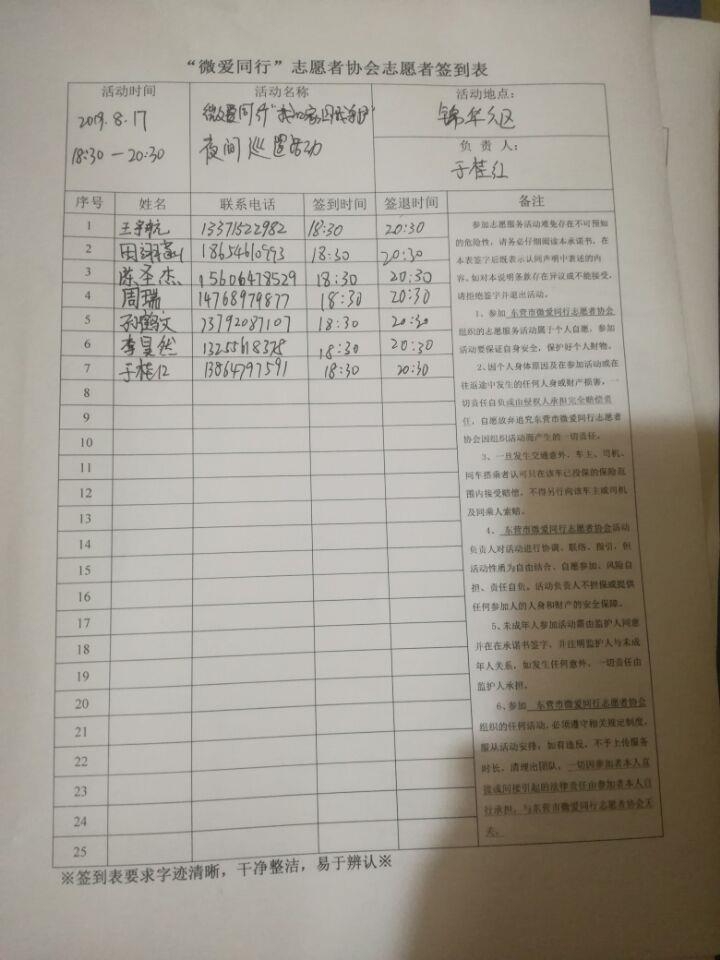 “微爱同行”志愿者协会志愿者签到表
活动时间
2019.8.17
18:30—20:30
活动名称
微爱同行“我的家园我守护”
夜间巡逻活动
活动地点：
锦华社区
负责人：
于桂红
序号 姓名 联系电话 签到时间 签退时间 备注
1 13371522982 18:30 20:30
2 18:30 20:30
3 陈圣杰 15606478529 18:30 20:30
4 周瑞 14768979877 18:30 20:30
5 孙鹤文 13792087107 18:30 20:30
6 李昊然 18:30 20:30
7 于桂红 13864797591 18:30 20:30
8
9
10
11
12
13
14
15
16
17
18
19
20
21
22
23
24
25
参加志愿服务活动难免存在不可预知
的危险性，请务必仔细阅读本承诺书，在
本表签字后既表示认同声明中表述的内
容。如对本说明条款存在异议或不能接受，
请拒绝签字并退出活动。
1、参加 东营市微爱同行志愿者协会
组织的志愿服务活动属于个人自愿，参加
活动要保证自身安全，保护好个人财物。
2、因个人身体原因及在参加活动或在
往返途中发生的任何人身或财产损害，一
切责任自负或由侵权人承担完全赔偿责
任，自愿放弃追究东营市微爱同行志愿者
协会因组织活动而产生的一切责任。
3、一旦发生交通意外，车主、司机、
同车搭乘者认可只在该车已投保的保险范
围内接受赔偿，不得另行向该车主或司机
及同乘人索赔。
4、东营市微爱同行志愿者协会活动
负责人对活动进行协调、联络、指引，但
活动性质为自由结合、自愿参加、风险自
担、责任自负。活动负责人不担保或提供
任何参加人的人身和财产的安全保障。
5、未成年人参加活动需由监护人同意
并在在承诺书签字，并注明监护人与未成
年人关系，如发生任何意外，一切责任由
监护人承担。
6、参加 东营市微爱同行志愿者协会
组织的任何活动，必须遵守相关规定制度，
服从活动安排，如有违反，不予上传服务
时长，清理出团队，一切因参加者本人直
接或间接引起的法律责任由参加者本人自
行承担，与东营市微爱同行志愿者协会无
关。
※签到表要求字迹清晰，干净整洁，易于辨认※